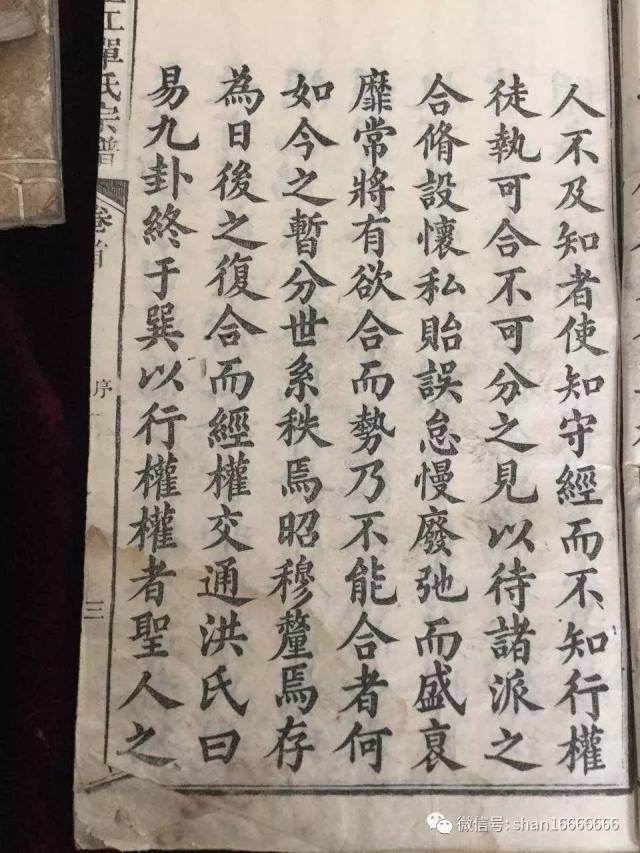 人不及知者使知守經而不知行權
徒執可合不可分之見以待諸派之
合脩設懷私貽誤怠慢廢弛而盛衰
靡常將有欲合而勢乃不能合者何
如今之暫分世系秩焉昭穆釐焉存
為日後之復合而經權交通洪氏曰
易九卦終于巽以行權權者聖人之
江單氏宗譜
卷首
序
三
微信号:shan16666666